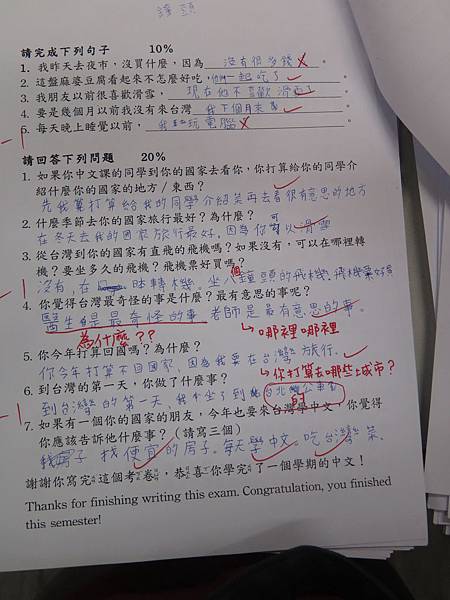 請完成下列句子 10%
1. 我昨天去夜市，沒買什麼，因為 沒有很多錢。
2. 這盤麻婆豆腐看起來不怎麼好吃，他們一起吃了。
3. 我朋友以前很喜歡滑雪， 現在他不喜歡滑雪了。
4. 要是幾個月以前我沒有來台灣 我下個月來
5. 每天晚上睡覺以前， 玩電腦。
-1
請回答下列問題 20%
1. 如果你中文課的同學到你的國家去看你，你打算給你的同學介
紹什麼你的國家的地方／東西？
先我打算給我的同學介紹菜再去看很有意思的地方
2. 什麼季節去你的國家旅行最好？為什麼？
在冬天去我的國家旅行最好。因為你可以滑雪
3. 從台灣到你的國家有直飛的飛機嗎？如果沒有，可以在哪裡轉
機？要坐多久的飛機？飛機票好買嗎？
沒有，在 轉機。坐八個鐘頭的飛機。飛機票好買
-1
4. 你覺得台灣最奇怪的事是什麼？最有意思的事呢？
醫生是最奇怪的事 老師是最有意思的事。
為什麼？？ 哪裡哪裡
5. 你今年打算回國嗎？為什麼？
我今年打算不回國，因為我要在台灣旅行。
你打算去哪些城市？
6. 到台灣的第一天，你做了什麼事？
到台灣的第一天，我坐了到台北的公車
-1
7. 如果有一個你的國家的朋友，今年也要來台灣學中文，你覺得
你應該告訴他什麼事？（請寫三個）
找房子 找便宜的房子。每天學中文。吃台灣菜。
謝謝你寫完這個考卷，恭喜你學完了一個學期的中文！
Thanks for finishing writing this exam. Congratulation, you finished
this semester!